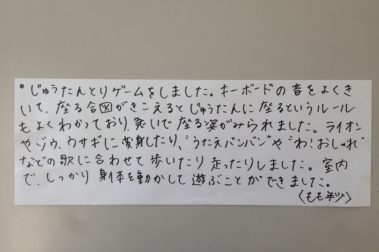 °じゅうたんとりゲームをしました。キーボードの音をよくき
いて、座る合図がきこえるとじゅうたんに座るというルール
もよくわかっており、急いで座る姿がみられました。ライオン
やゾウ、ウサギに変身したり、“うたえバンバン”や“わ!おしゃれ”
などの歌に合わせて歩いたり走ったりしました。室内
で、しっかり身体を動かして遊ぶことができました。
〈もも